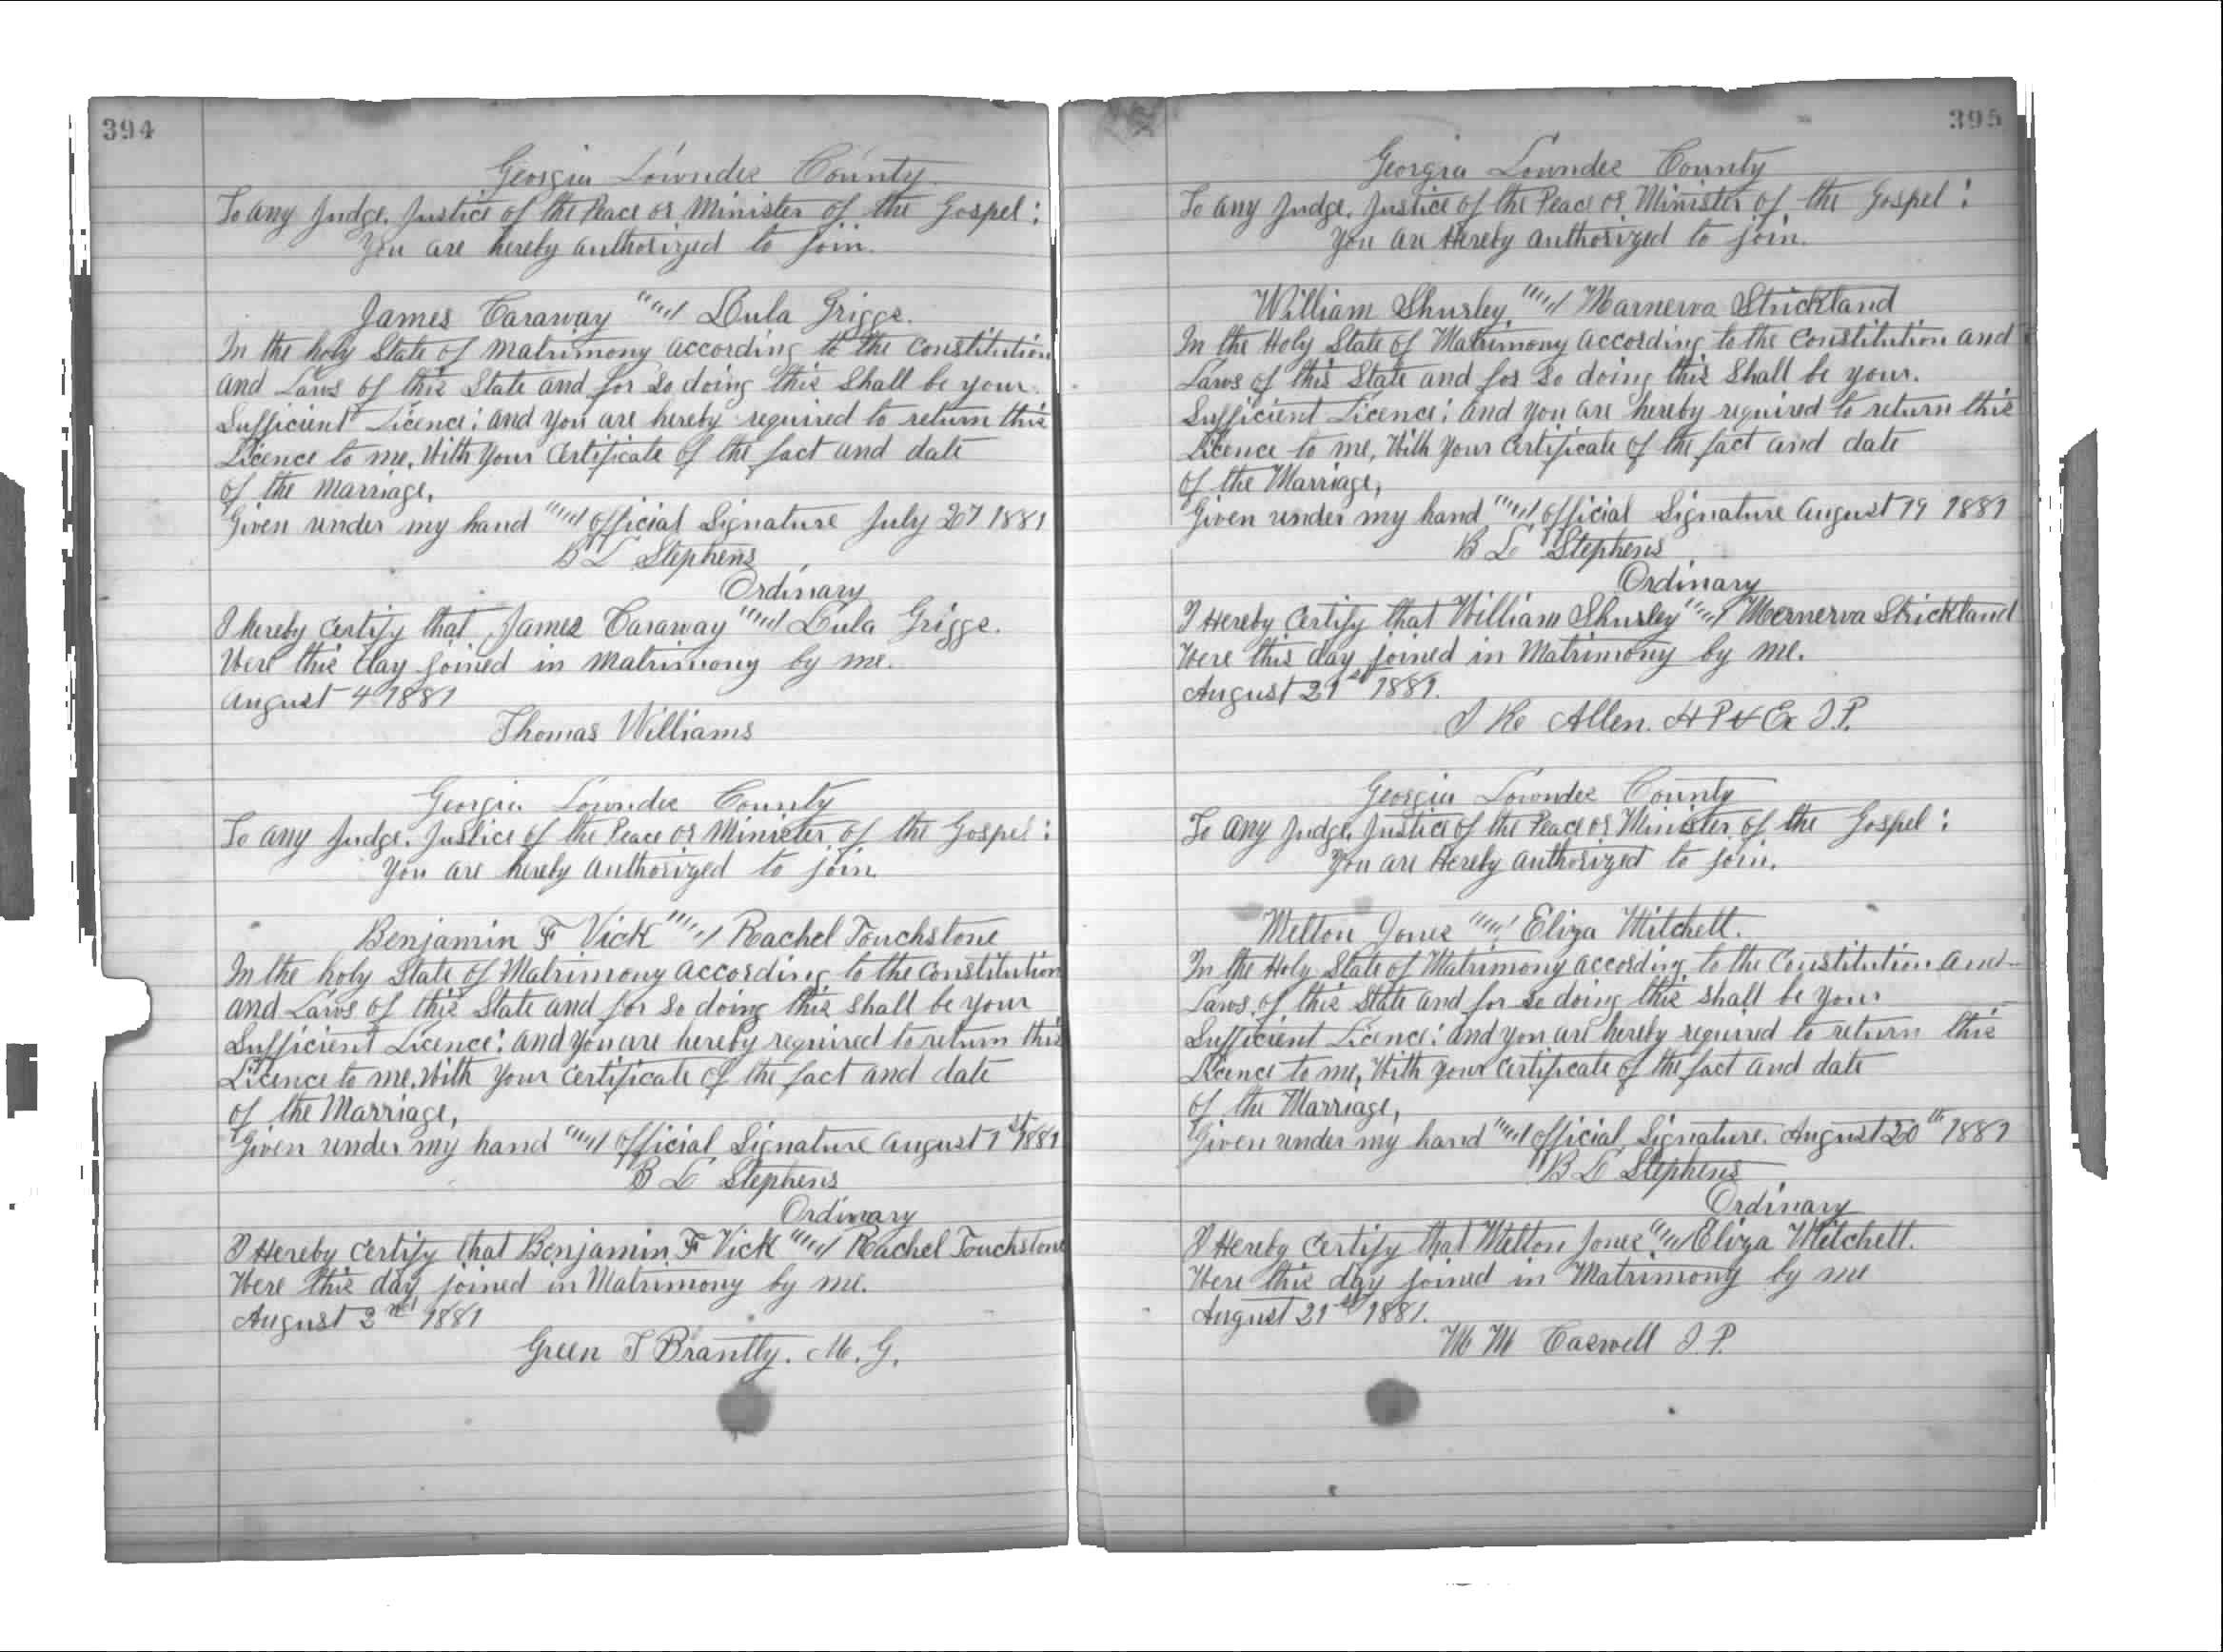 394
Georgia Lowndes County
To any Judge, Justice of the Peace or Minister of the Gospel:
You are hereby authorized to join.
James Caraway "" Lula Griggs.
In the holy State of matrimony according to the Constitution
and Laws of this State and for so doing this Shall be your
Sufficient Licence: and you are hereby required to return this
Licence to me, With Your Certificate of the fact and date
of the marriage,
Given under my hand "" official Signature July 27 1881
B L Stephens
Ordinary
I hereby Certify that James Caraway "" Lula Griggs.
Were this day joined in matrimony by me.
August 4 1881
Thomas Williams
Georgia Lowndes County
To any Judge, Justice of the Peace or Minister of the Gospel:
You are hereby authorized to join.
Benjamin F Vick "" Rachel Touchstone
In the holy State of Matrimony according to the Constitution
and Laws of this State and for so doing this shall be your
Sufficient Licence: and you are hereby required to return this
Licence to me, With Your Certificate of the fact and date
of the Marriage,
Given under my hand "" official Signature August 1st 1881
B L Stephens
Ordinary
I Hereby Certify that Benjamin F Vick "" Rachel Touchstone
Were this day joined in Matrimony by me.
August 2nd 1881
Green T Brantly. M. G.
395
Georgia Lowndes County
To any Judge, Justice of the Peace or Minister of the Gospel:
You are Hereby authorized to join.
William Shurley "" Marnerva Strickland
In the Holy State of Matrimony according to the Constitution and
Laws of this State and for so doing this Shall be your.
Sufficient Licence: and you are hereby required to return this
Licence to me, With your Certificate of the fact and date
of the Marriage,
Given under my hand "" official Signature August 19 1881
B L Stephens
Ordinary
I Hereby Certify that William Shurley "" Mernerva Strickland
Were this day joined in Matrimony by me.
August 21st 1881.
Allen. J.P.
Georgia Lowndes County
To any Judge, Justice of the Peace or Minister of the Gospel:
You are Hereby authorized to join.
Melton Jones "" Eliza Mitchett.
In the Holy State of Matrimony according to the Constitution and
Laws of this State and for so doing this shall be your
Sufficient Licence: and you are hereby requred to return this
Licence to me, With your Certificate of the fact and date
of the Marriage,
Given under my hand "" official Signature. August 20th 1881
B L Stephens
Ordinary
I Hereby Certify that Melton Jones "" Eliza Mitchett.
Were this day joined in Matrimony by me
August 21st 1881.
M M Caswell J. P.